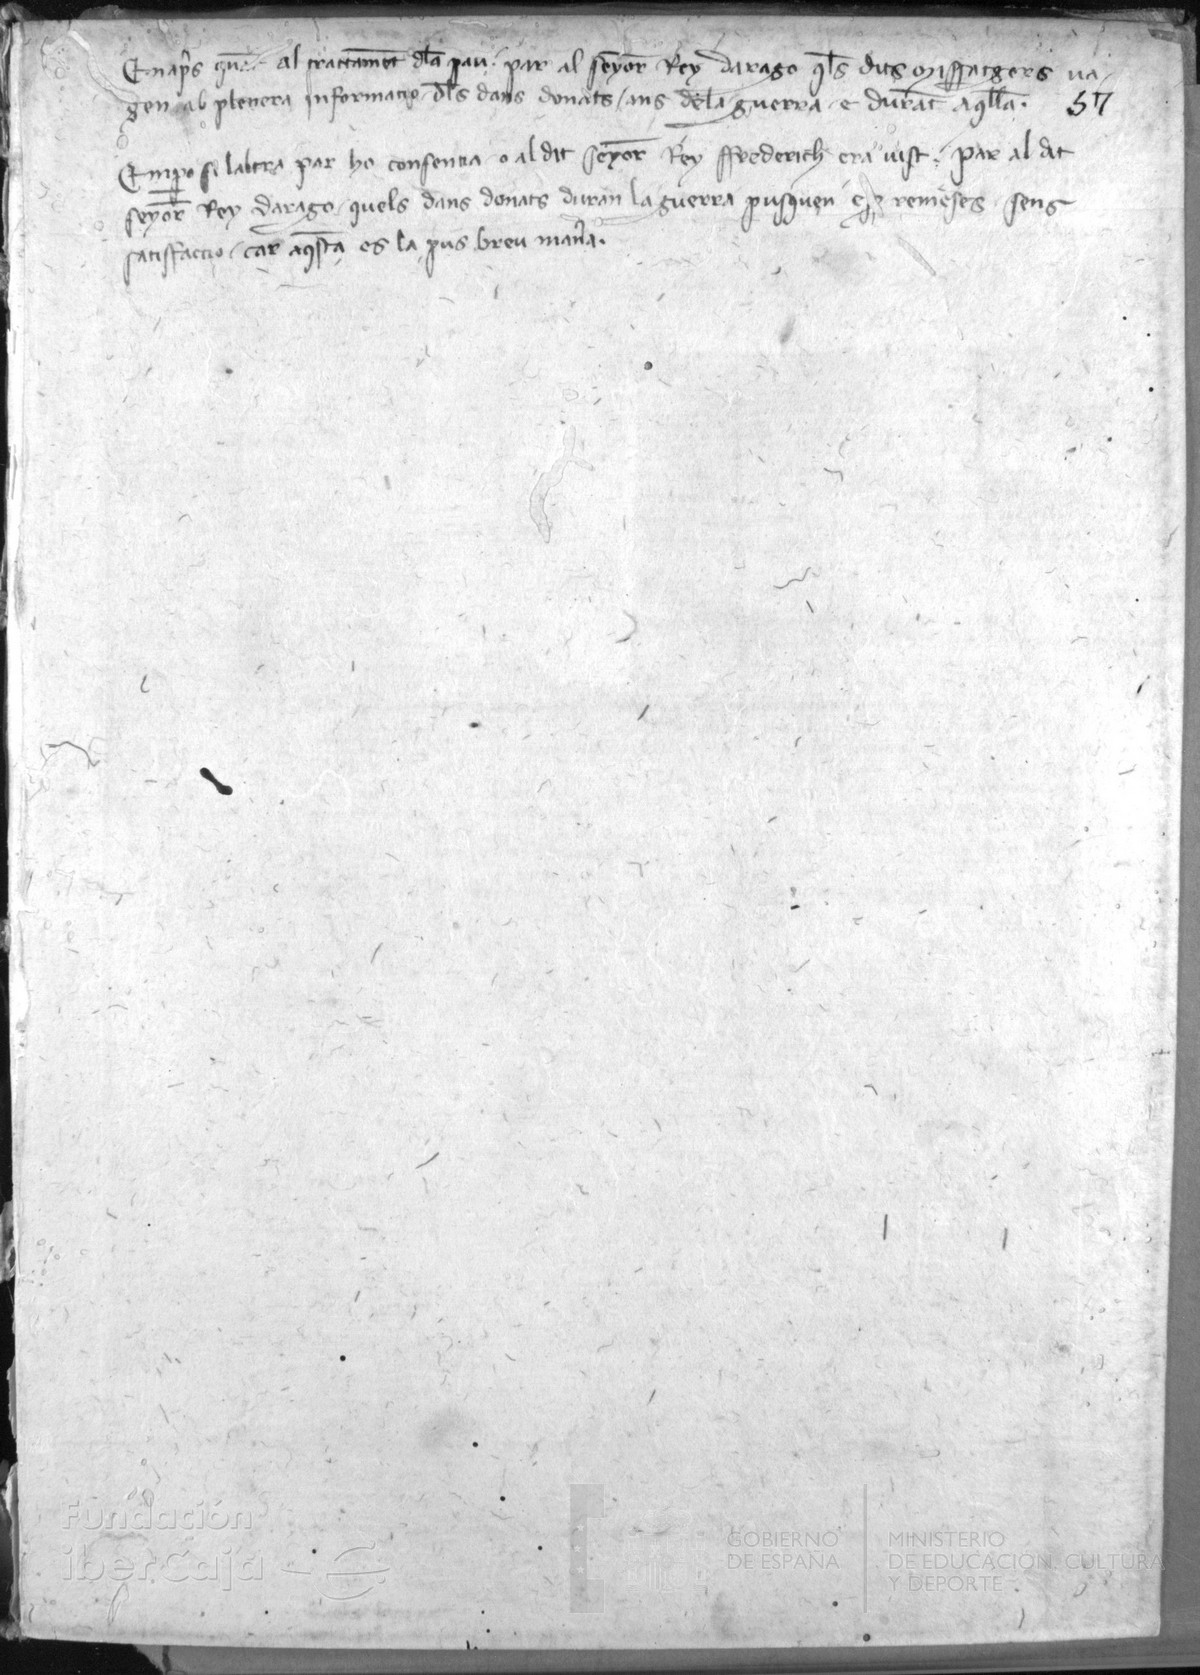 Enaps qua· al tractament dla pau· par al senyor Rey darago qls dits missatgers va
gen ab plenera informacio dls dans donats ans dela guerra e durat aqlla· 57
Empo si laltra par ho consentia o al dit senyor Rey ffrederich era vist· par al dit
senyor Rey darago quels dans donats duran la guerra pusquen remeses sens
satisfaccio car aqsta es la pus breu mana·
Fundación
iberCaja
GOBIERNO
DE ESPAÑA
MINISTERIO
DE EDUCACIÓN, CULTURA
Y DEPORTE